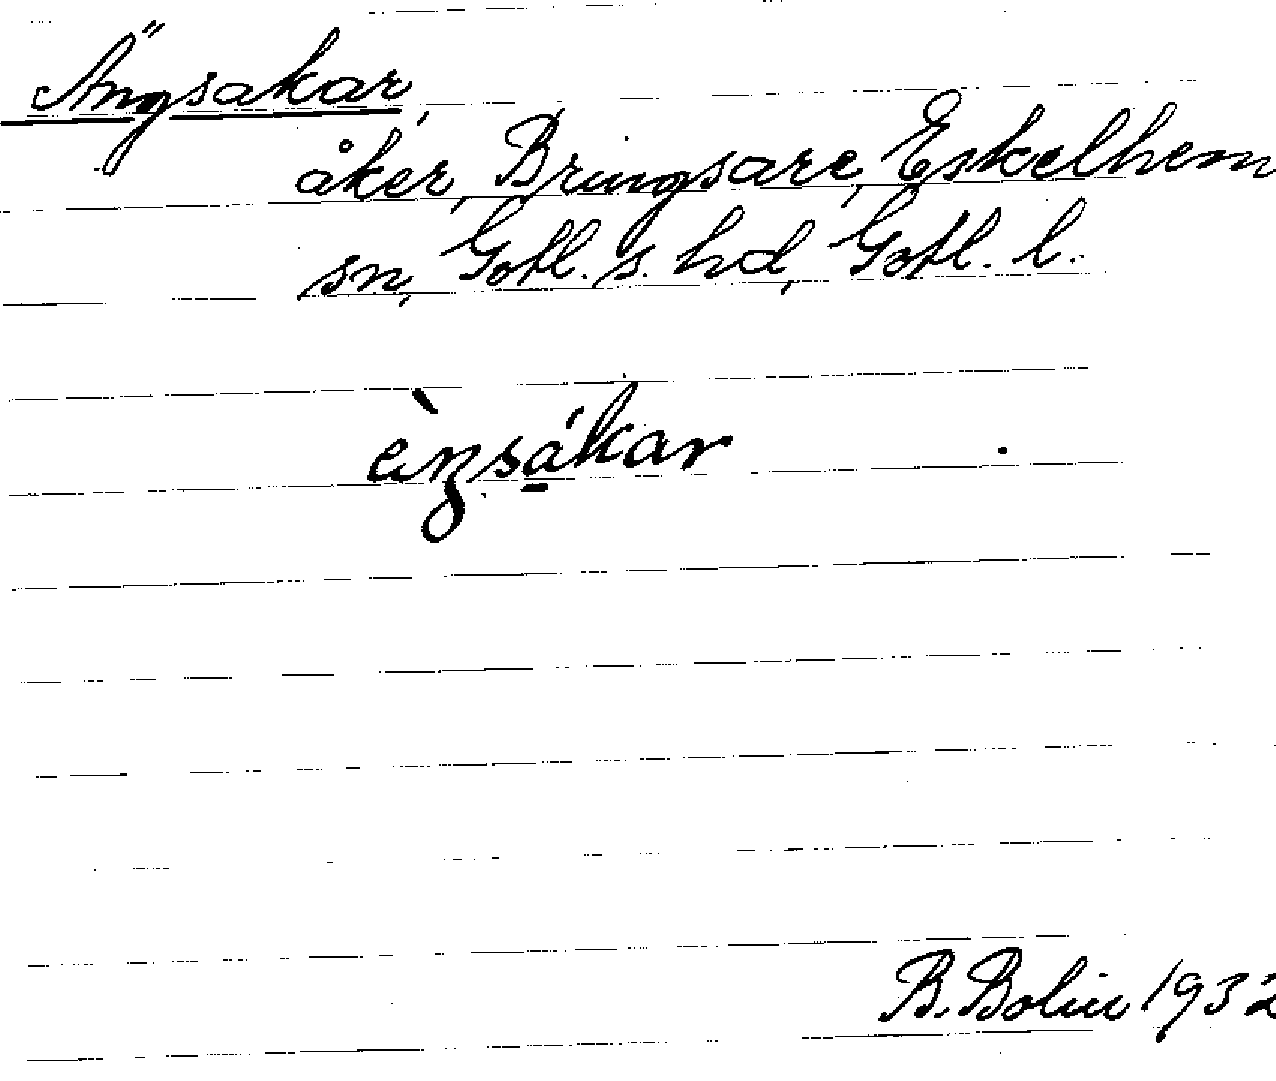 Ängsakar,
åker, Bringsarve, Eskelhem
sn, Gotl. s. hd, Gotl. l.
èŋsákar
B. Bolin 1932